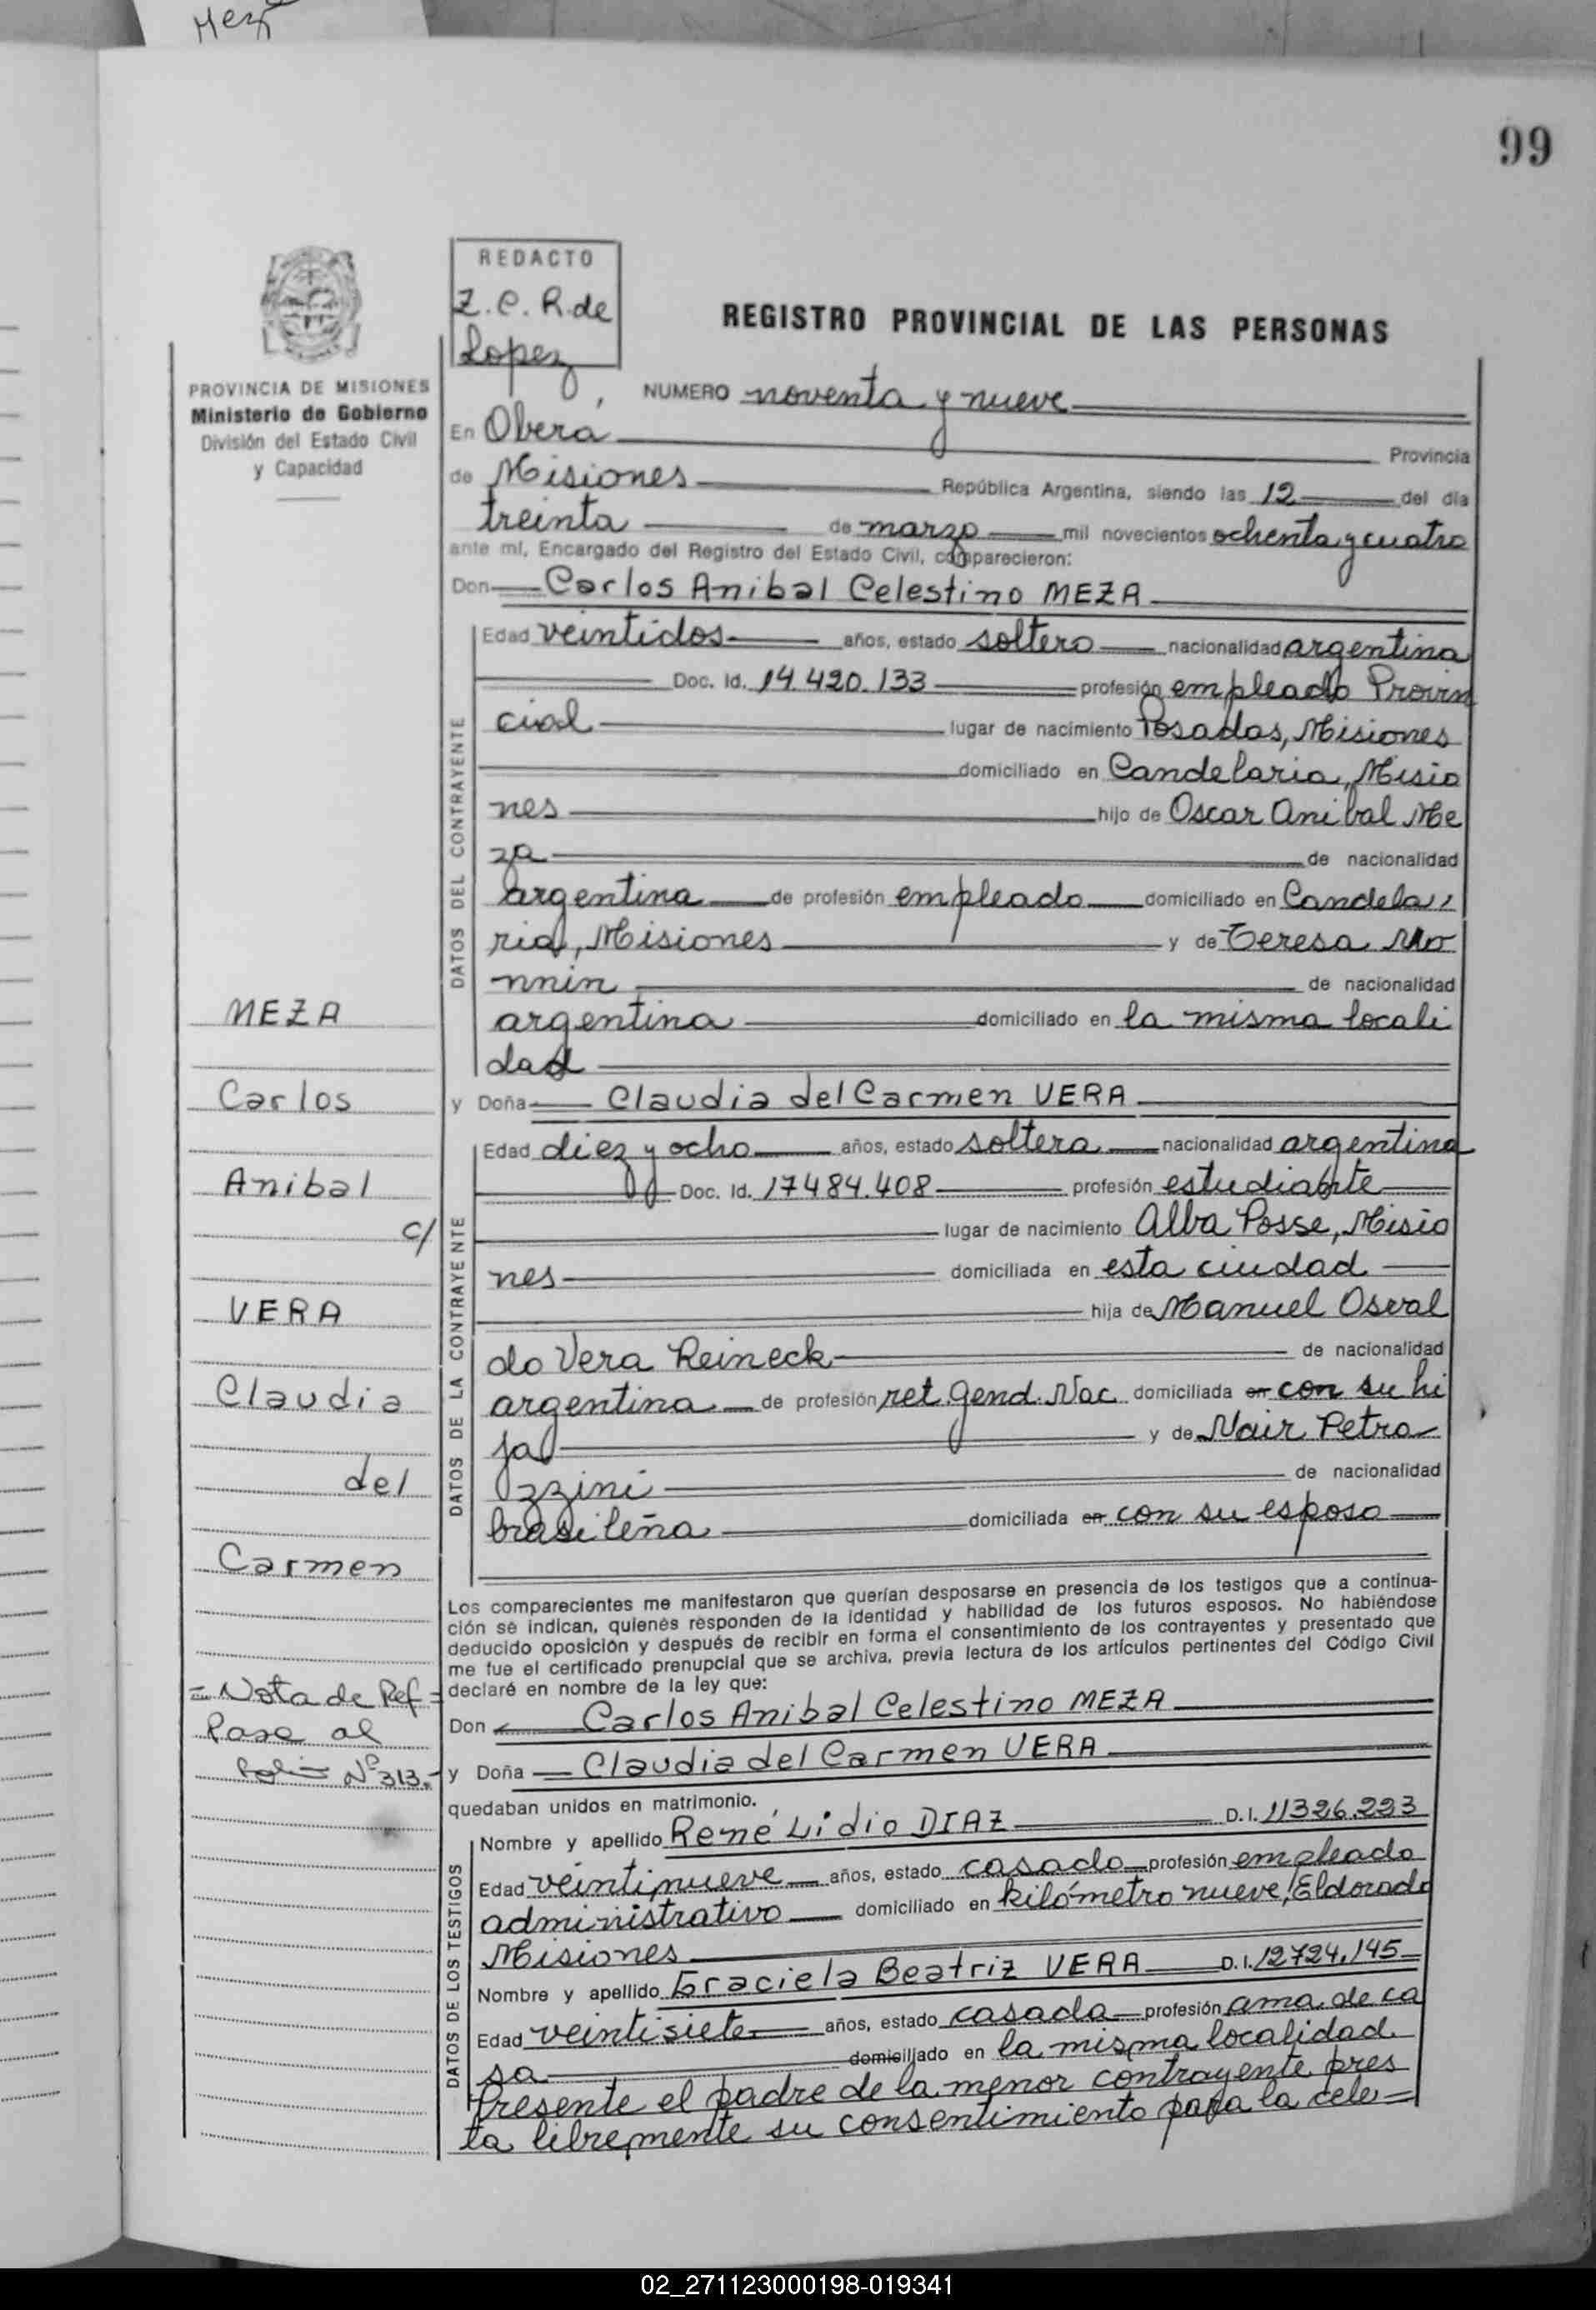 Mez
99
REDACTO
Z.C.R. de
Lopez
PROVINCIA DE MISIONES
Ministerio de Gobierno
División del Estado Civil
y Capacidad
REGISTRO PROVINCIAL DE LAS PERSONAS
NUMERO noventa y nueve
En Obera Provincia
de Misiones República Argentina, siendo las 12 del día
treinta de marzo mil novecientos ochenta y cuatro
ante mí, Encargado del Registro del Estado Civil, comparecieron:
Don Carlos Anibal Celestino MEZA
DATOS DEL CONTRAYENTE
Edad veintidos años, estado soltero nacionalidad argentina
Doc. Id. 14.420.133 profesión empleado Provin
cial lugar de nacimiento Posadas, Misiones
domiciliado en Candelaria, Misio
nes hijo de Oscar Anibal Me
za de nacionalidad
argentina de profesión empleado domiciliado en Candela,,
ria, Misiones y de Teresa Mo
nnin de nacionalidad
argentina domiciliado en la misma locali
dad
y Doña Claudia del Carmen VERA
DATOS DE LA CONTRAYENTE
Edad diez y ocho años, estado soltera nacionalidad argentina
Doc. Id. 17484.408 profesión estudiante
lugar de nacimiento Alba Posse, Misio
nes domiciliada en esta ciudad
hija de Manuel Osval
do Vera Reineck de nacionalidad
argentina de profesión ret. Gend. Nac domiciliada en con su hi
ja y de Nair Petra
Ozzini de nacionalidad
brasileña domiciliada en con su esposo
Los comparecientes me manifestaron que querían desposarse en presencia de los testigos que a continua-
ción se indican, quienes responden de la identidad y habilidad de los futuros esposos. No habiéndose
deducido oposición y después de recibir en forma el consentimiento de los contrayentes y presentado que
me fue el certificado prenupcial que se archiva, previa lectura de los artículos pertinentes del Código Civil
declaré en nombre de la ley que:
Don Carlos Anibal Celestino MEZA
y Doña Claudia del Carmen VERA
quedaban unidos en matrimonio.
DATOS DE LOS TESTIGOS
Nombre y apellido René Lidio DIAZ D.I. 11326.223
Edad veintinueve años, estado casado profesión empleado
administrativo domiciliado en kilómetro nueve, Eldorado
Misiones
Nombre y apellido Graciela Beatriz VERA D.I. 12724.145
Edad veintisiete años, estado casada profesión ama de ca
sa domiciliado en la misma localidad.
Presente el padre de la menor contrayente pres
ta libremente su consentimiento para la cele=
MEZA
Carlos
Anibal
c/
VERA
Claudia
del
Carmen
=Nota de Ref=
Pase al
Folio Nº 313.-
02_271123000198-019341